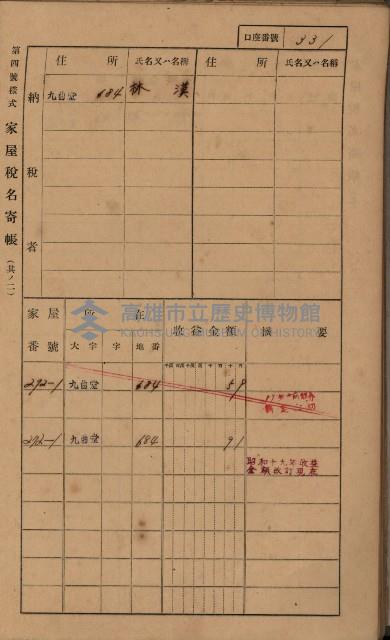 口座番號 331
第四號樣式 家屋稅名寄帳 (其ノ二)
住所 氏名又ハ名稱 住所 氏名又ハ名稱
納稅者
九曲堂 684 林 漢
家屋番號 所在 收益金額 摘要
大字 字 地番
292-1 九曲堂 684 59
292-1 九曲堂 684 91
昭和十九年收益
金額改訂現在
高雄市立歷史博物館
KAOHSIUNG MUSEUM OF HISTORY